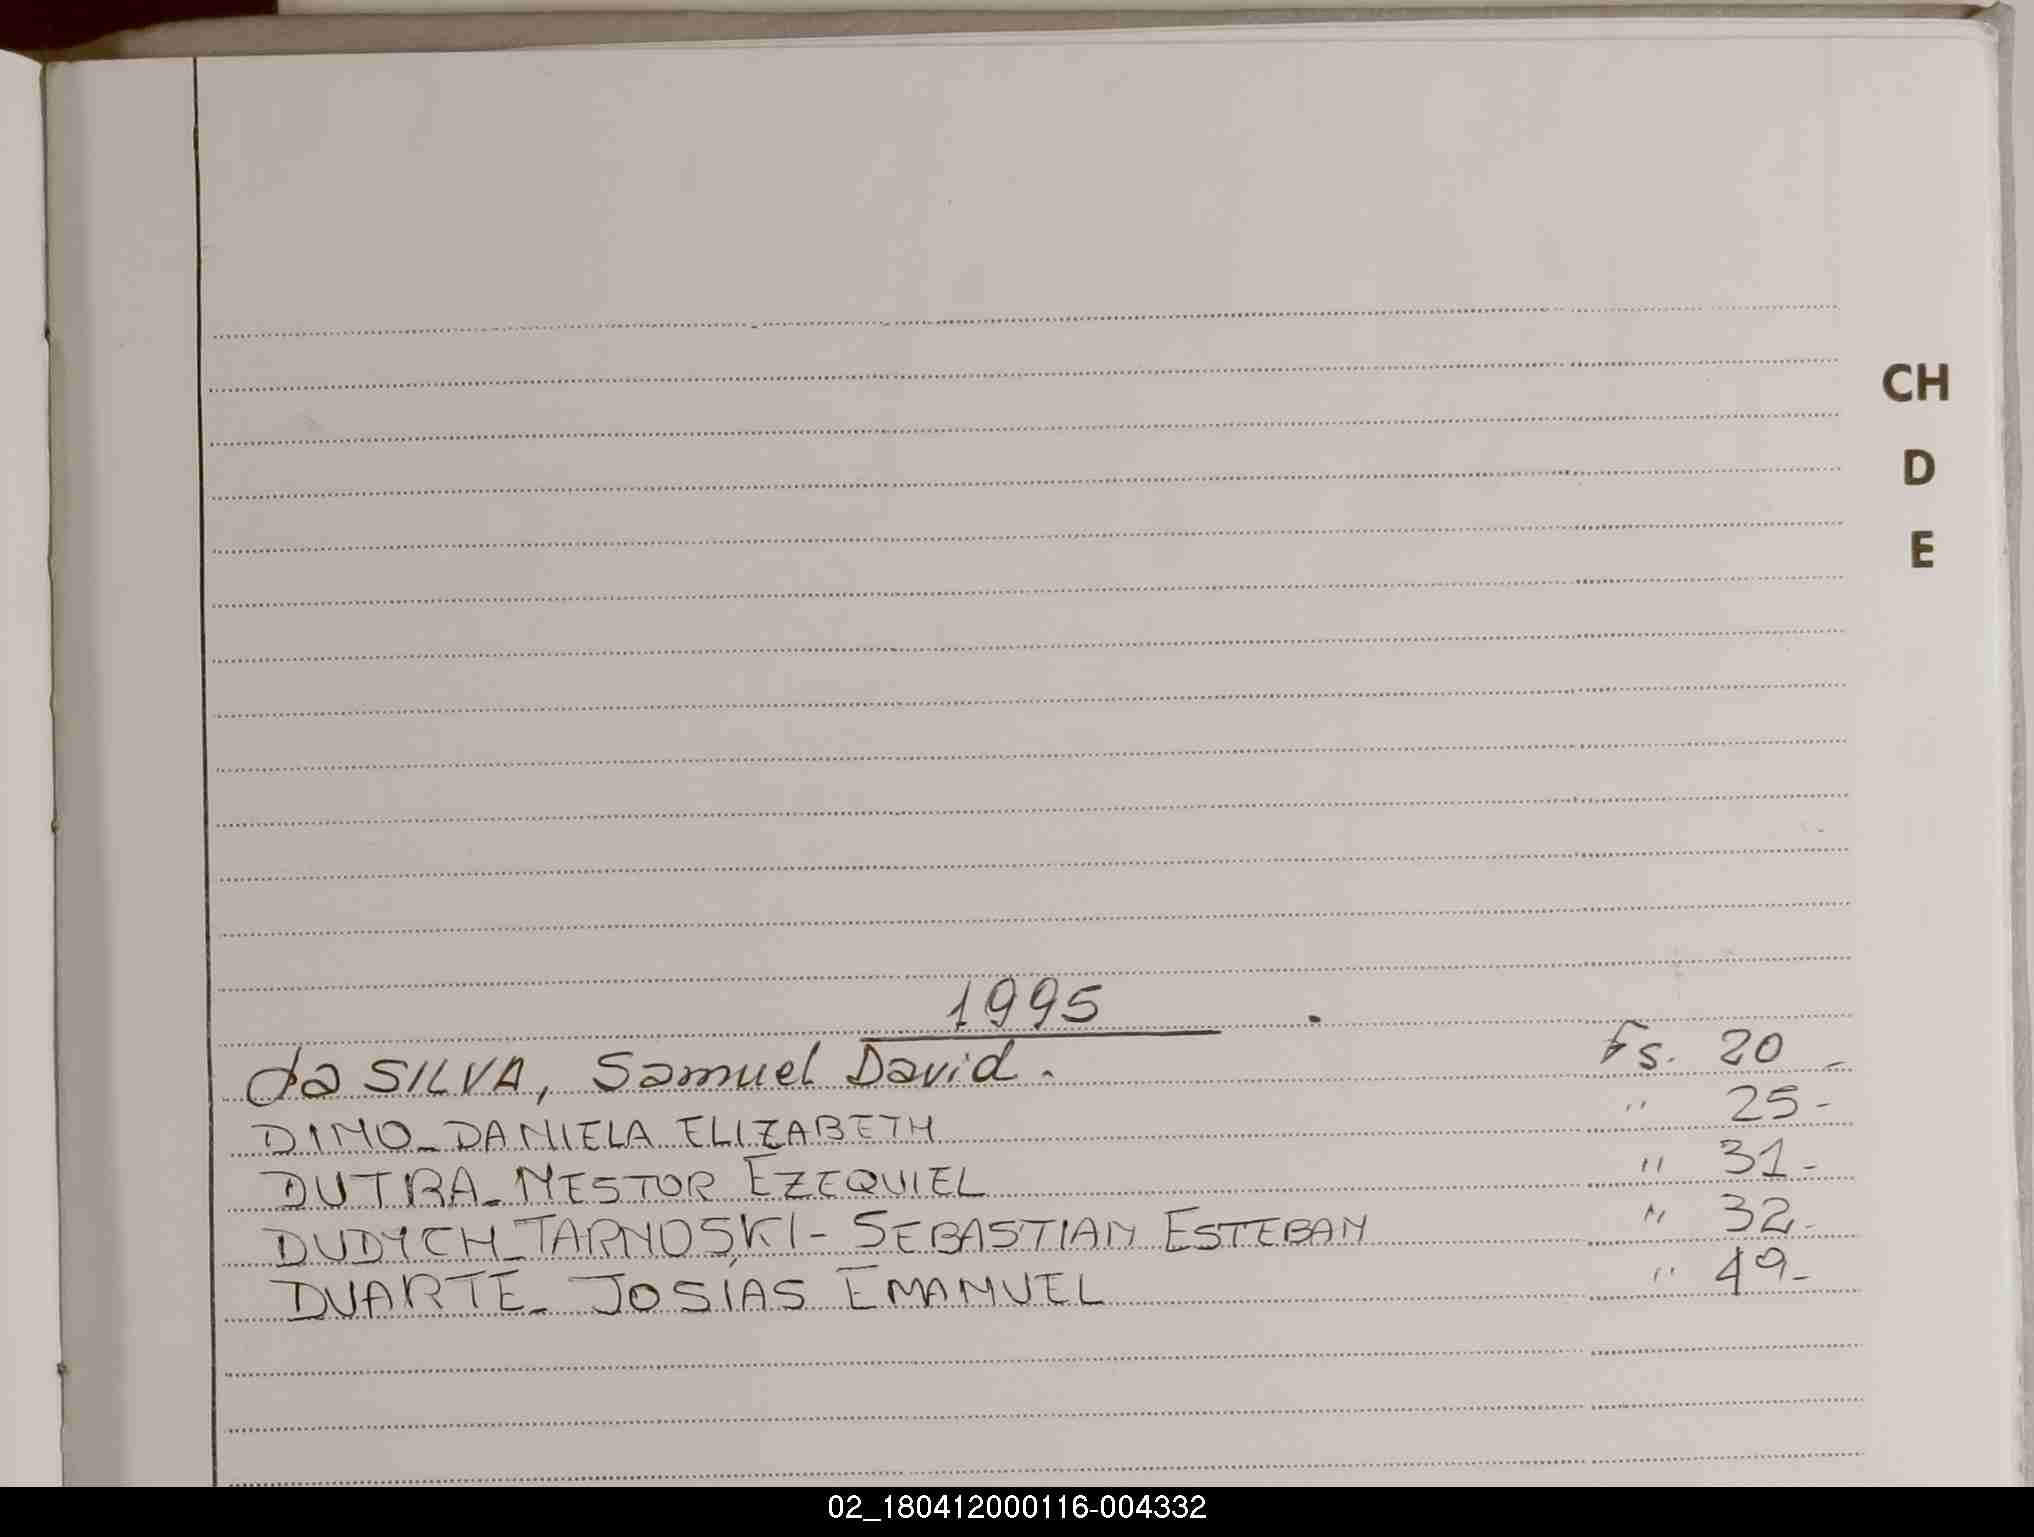 CH
D
E
1995
da SILVA, Samuel David. Fs. 20 -
DIMO - DANIELA ELIZABETH " 25 -
DUTRA - NESTOR EZEQUIEL " 31 -
DUDYCH - TARNOSKI - SEBASTIAN ESTEBAN " 32 -
DUARTE - JOSÍAS EMANUEL " 49 -
02_180412000116-004332